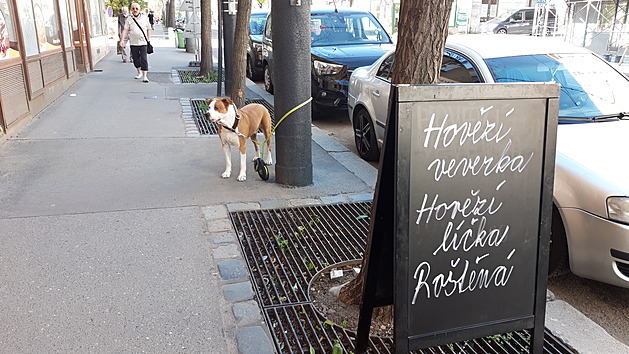 Hovězí
veverka
Hovězí
líčka
Roštěná